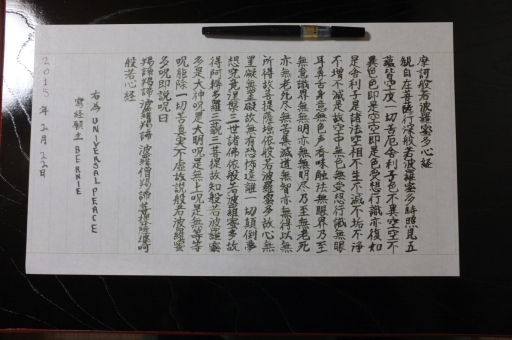 摩訶般若波羅蜜多心経
観自在菩薩行深般若波羅蜜多時照見五
蘊皆空度一切苦厄舎利子色不異空空不
異色色即是空空即是色受想行識亦復如
是舎利子是諸法空相不生不滅不垢不浄
不増不減是故空中無色無受想行識無眼
耳鼻舌身意無色声香味触法無眼界乃至
無意識界無無明亦無無明尽乃至無老死
亦無老死尽無苦集滅道無智亦無得以無
所得故菩提薩埵依般若波羅蜜多故心無
罣礙無罣礙故無有恐怖遠離一切顛倒夢
想究竟涅槃三世諸佛依般若波羅蜜多故
得阿耨多羅三藐三菩提故知般若波羅蜜
多是大神呪是大明呪是無上呪是無等等
呪能除一切苦真実不虚故説般若波羅蜜
多呪即説呪曰
羯諦羯諦波羅羯諦 波羅僧羯諦菩提薩婆訶
般若心経
右為 UNIVERSAL PEACE
寫経願主 BERNIE
2015年2月22日